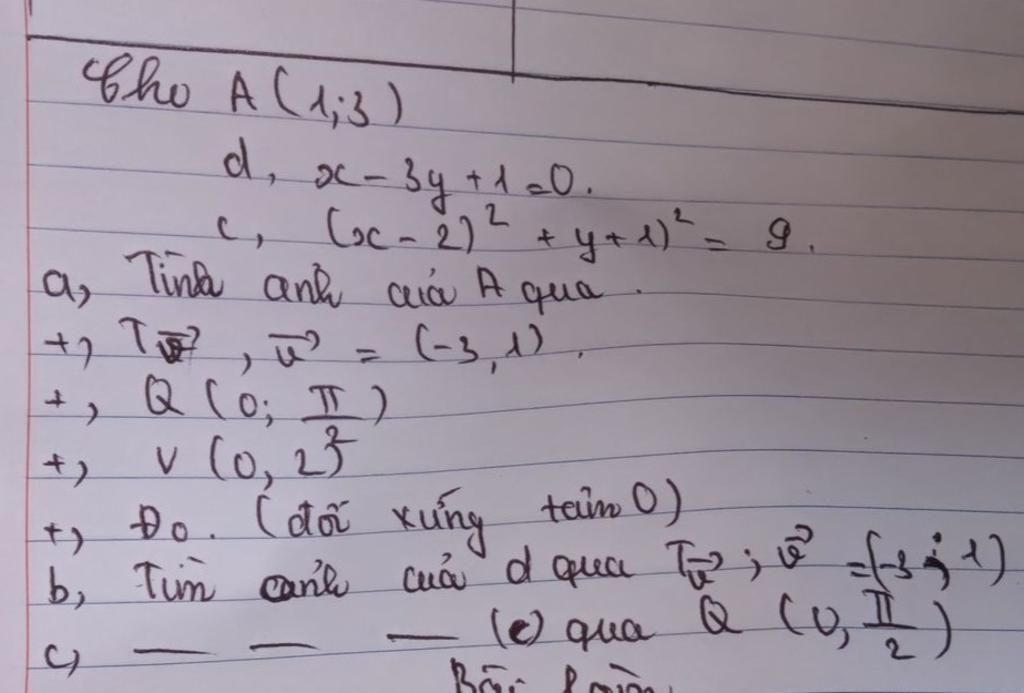 Cho A(1;3)
d, x - 3y + 1 = 0.
c, (x - 2)² + y + 1)² = 9.
a, Tính ảnh của A qua.
+, T v⃗, v⃗ = (-3, 1).
+, Q (0; π/2)
+, V (0, 2)
+, Đo. (đối xứng tâm O)
b, Tìm ảnh của d qua T v⃗; v⃗ = (-3; 1)
c, — — — (c) qua Q (0, π/2)
Bài